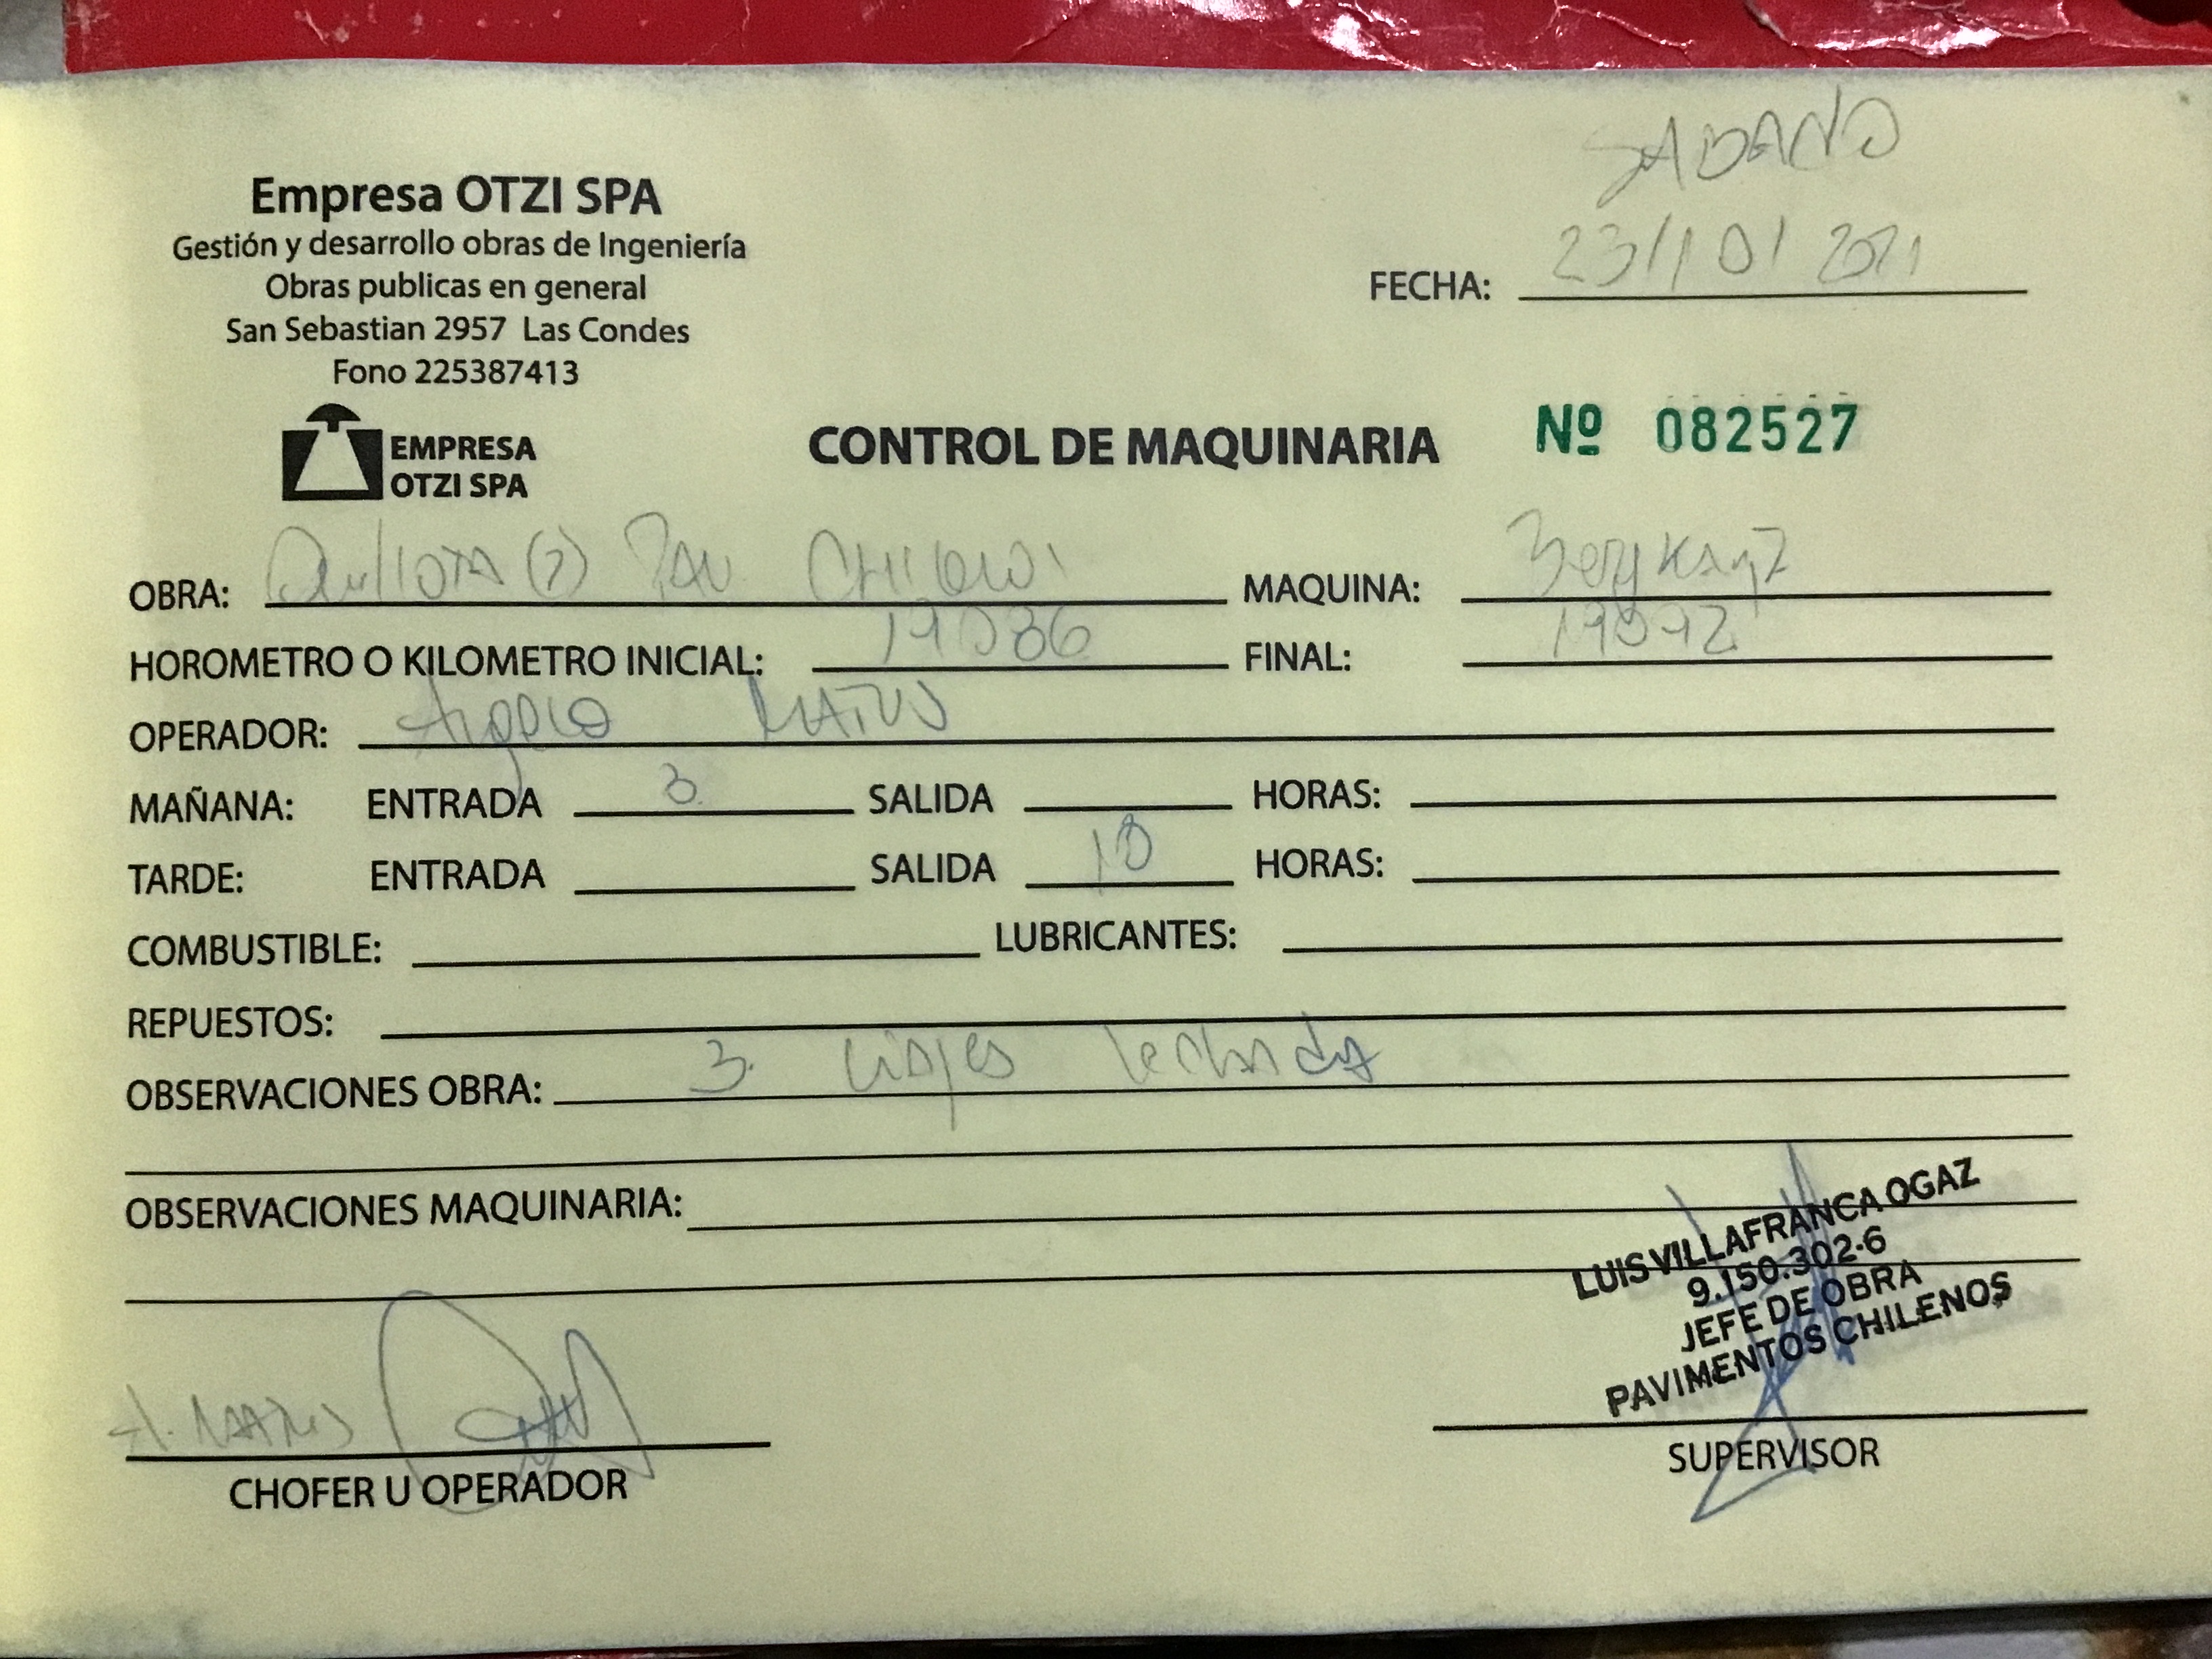 SABADO
Empresa OTZI SPA
Gestión y desarrollo obras de Ingeniería
Obras publicas en general
San Sebastian 2957 Las Condes
Fono 225387413
FECHA: 23/10/2021
EMPRESA
OTZI SPA
CONTROL DE MAQUINARIA Nº 082527
OBRA: Quillota (2) Pav MAQUINA:
HOROMETRO O KILOMETRO INICIAL: 19086 FINAL: 19092
OPERADOR: Angelo MATUS
MAÑANA: ENTRADA SALIDA HORAS:
TARDE: ENTRADA SALIDA 18 HORAS:
COMBUSTIBLE: LUBRICANTES:
REPUESTOS:
OBSERVACIONES OBRA: 3 viajes lechada
OBSERVACIONES MAQUINARIA:
LUIS VILLAFRANCA OGAZ
9.150.302-6
JEFE DE OBRA
PAVIMENTOS CHILENOS
A. MATUS
CHOFER U OPERADOR
SUPERVISOR